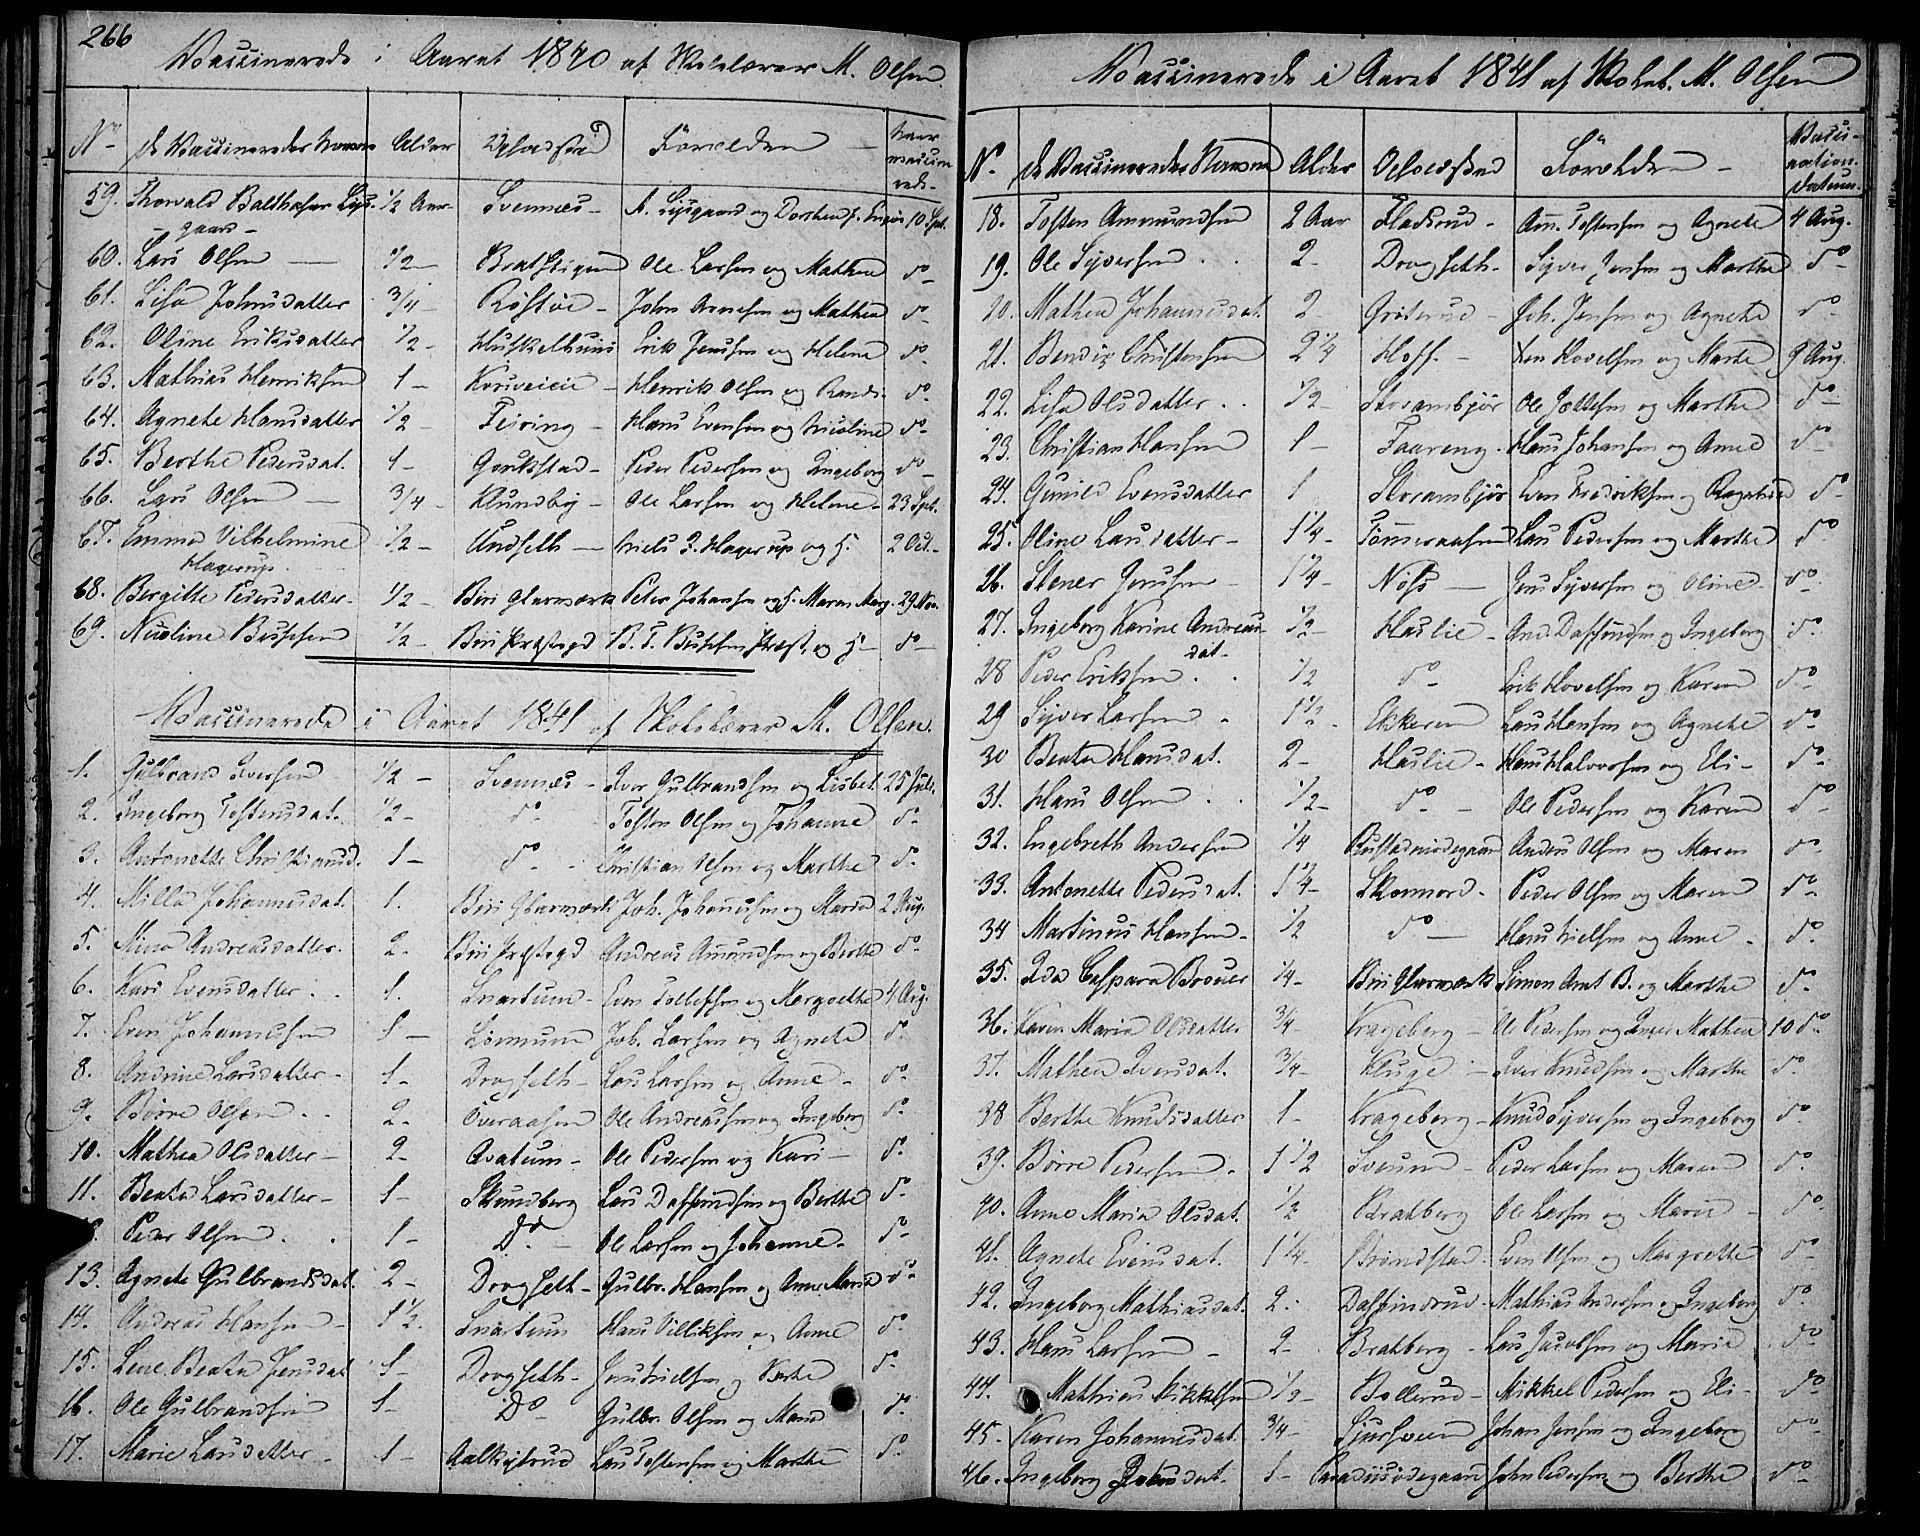 266
Vaccinerede i Aaret 1840 af Skolelærer M. Olsen
No De Vaccineredes Navne Alder Opholdssted Forældre Naar vaccinerede
59. Thorvald Balthasar Lysgaard 1/2 Aar Svennæs A. Lysgaard og Dorthea f. 10 Spt.
60. Lars Olsen 1/2 Brathstigen Ole Larsen og Mathea do
61. Lisa Johnsdatter 3/4 Røstøe John Arnesen og Mathea do
62. Oline Eriksdatter 1/2 Huskelhuus Erik Jensen og Helene do
63. Mathias Henriksen 1 Korsveien Henrik Olsen og Randi do
64. Agnete Hansdatter 1/2 Feiring Hans Evensen og Nicoline do
65. Berthe Pedersdat. 1 Gaukstad Peder Pedersen og Ingeborg do
66. Lars Olsen 3/4 Klundby Ole Larsen og Helene 23 Spt.
67. Emma Vilhelmine Hagerup 1/2 Undseth Niels J. Hagerup og H. 2 Oct.
68. Birgitte Pedersdatter 1/2 Biri Glarværk Peter Johansen og H. Maren Marg. 29 Nov.
69. Nicoline Buschen 1/2 Biri Præstegd B. T. Buschen Præst, og H do
Vaccinerede i Aaret 1841 af Skolelærer M. Olsen.
1. Gulbrand Iversen 1/2 Svennæs Iver Gulbrandsen og Lisbet 25 Juli.
2. Ingeborg Tostensdat. 1/2 do Tosten Olsen og Johanne do
3. Antonette Christiansd. 1 do Christian Olsen og Marthe do
4. Milla Johannesdat. 1. Biri Glarværk Joh. Johannesen og Maria 2 Aug.
5. Mina Andreasdatter. 2. Biri Præstegd Andreas Amundsen og Berthe do
6. Kari Evensdatter 1. Snartum Even Tollefsen og Margrethe 4 Aug.
7. Even Johannesen 1 Lønnum Joh. Larsen og Agnete do
8. Andrine Larsdatter 1 Drogseth Lars Larsen og Anne do
9. Børre Olsen 2 Overaasen Ole Andreassen og Ingeborg do
10. Mathea Olsdatter 2 Qvatum Ole Pedersen og Kari do
11. Beata Larsdatter 1 Skundberg Lars Daffindsen og Berthe do
12. Peder Olsen 1 Do Ole Larsen og Johanne do
13. Agnete Gulbrandsdat. 2 Drogseth Gulbr. Hansen og Anne Maria do
14. Andreas Hansen 1 1/2 Snartum Hans Villiksen og Anne do
15. Lene Beata Jensdat 1 Drogseth Jens Nielsen og Berte do
16. Ole Gulbrandsen 1 Do Gulbr. Olsen og Maria do
17. Marie Larsdatter 1 Aalkystrud Lars Tostensen og Marthe do
Vaccinerede i Aaret 1841 af Skolel. M. Olsen
N. De Vaccineredes Navne Alder Opholdssted Forældre Vaccinations Datum
18. Tosten Ammundsen 2 Aar Fladsrud Am. Tostensen og Agnete 4 Aug.
19. Ole Syversen 2 Drogseth Syver Jensen og Marthe do
20. Mathea Johannesdat. 2 Griterud Joh. Jensen og Agnete do
21. Bendix Christensen 2 1/4 Hoff Hovelsen og Marte 9 Aug.
22. Lisa Olsdatter 1/2 Storambjør Ole Jottesen og Marthe do
23. Christian Hansen 1 Taareng Hans Johansen og Anne do
24. Gunild Evensdatter 1 Storambjør Even Fredriksen og Ragnhild do
25. Oline Larsdatter 1 1/4 Tømmeraasen Lars Pedersen og Marthe do
26. Stener Jensen 1 1/4 Nøss Jens Syversen og Oline do
27. Ingeborg Karine Andreasdat 1/2 Haslie And. Daffindsen og Ingeborg do
28 Peder Eriksen 1/2 do Erik Hovelsen og Karen do
29 Syver Larsen 1 1/2 Ekkeren Lars Hansen og Agnete do
30 Beata Hansdat. 2 Haslie Hans Halvorsen og Eli do
31. Hans Olsen 1/2 do Ole Pedersen og Karen do
32. Ingebreth Andersen 1/4 Rustadniødegaard Anders Olsen og Maren do
33. Antonette Pedersdat. 1 1/4 Skonnord Peder Olsen og Maren do
34 Martinus Hansen 1/2 do Hans Nielsen og Anne do
35. Ida Caspara Brouer 1/4 Biri Glarværk Simon Arnt B. og Marthe do
36. Karen Maria Olsdatter 3/4 Krageberg Ole Pedersen og Inger Mathea 10 do
37. Mathea Iversdat. 3/4 Kluge Iver Knudsen og Marthe do
38 Berthe Knudsdatter 1 Krageberg Knud Syversen og Ingeborg do
39. Børre Pedersen 1 1/2 Sveum Peder Larsen og Maren do
40. Anne Maria Olsdat. 1/2 Bratberg Ole Larsen og Marie do
41. Agnete Evensdat. 1 1/4 Brøndstad Even Olsen og Margrethe do
42. Ingeborg Mathiasdat. 2. Daffindrud Mathias Andersen og Ingeborg do
43. Hans Larsen 2 Bratberg Lars Jacobsen og Marie do
44. Mathias Mikkelsen 1/2 Bollerud Mikkel Pedersen og Eli do
45. Karen Johannesdat. 3/4 Sjursveen Johan Jensen og Ingeborg do
46. Ingeborg Johnsdat. 1 Paradiisødegaard John Pedersen og Berthe do